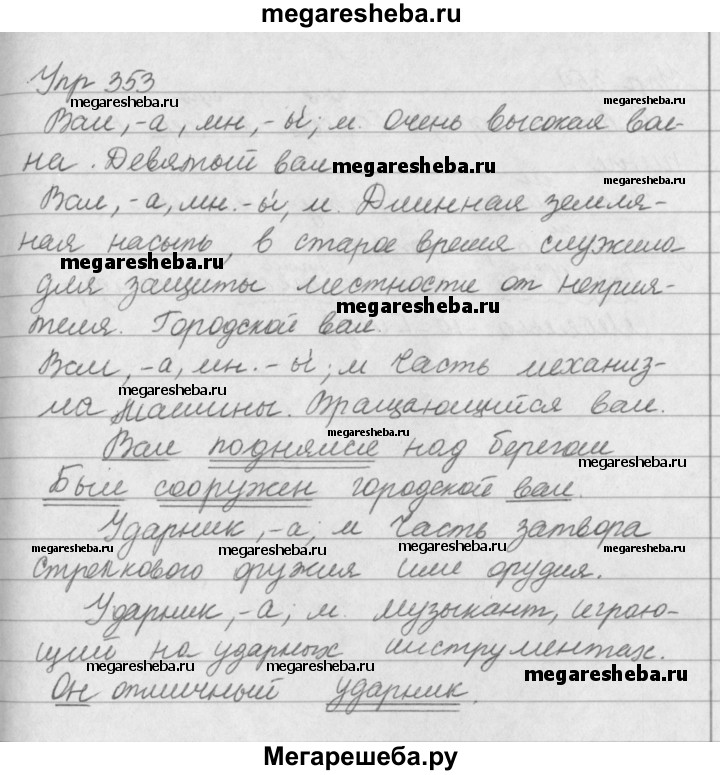 megaresheba.ru
Упр 353
megaresheba.ru megaresheba.ru
Вал, -а, мн, -ы́; м. Очень высокая вол-
на. Девятый вал megaresheba.ru
Вал, -а, мн. -ы́, м. Длинная земля-
ная насыпь, в старое время служила
megaresheba.ru megaresheba.ru
для защиты местности от неприя-
megaresheba.ru
теля. Городской вал.
Вал, -а, мн. -ы́; м Часть механиз-
megaresheba.ru megaresheba.ru
ма машины. Вращающийся вал.
megaresheba.ru
Вал поднялся над берегом
megaresheba.ru megaresheba.ru
Был сооружен городской вал.
Ударник, -а; м Часть затвора
megaresheba.ru megaresheba.ru megaresheba.ru megaresheba.ru
стрелкового оружия или орудия.
Ударник, -а; м. музыкант, играю-
щий на ударных инструментах.
megaresheba.ru megaresheba.ru megaresheba.ru
Он отличный ударник.
Мегарешеба.ру